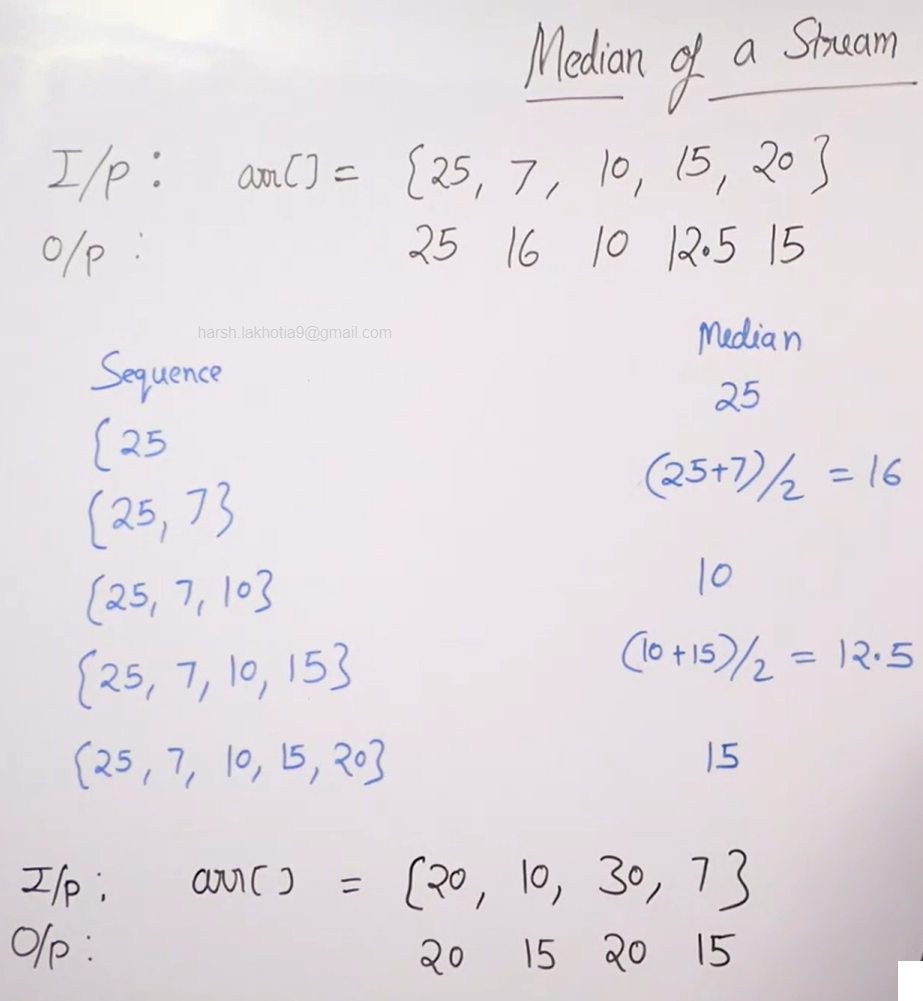 Median of a Stream
I/p : arr[] = {25, 7, 10, 15, 20}
O/p : 25 16 10 12.5 15
harsh.lakhotia9@gmail.com
Sequence Median
{25 25
{25, 7} (25+7)/2 = 16
{25, 7, 10} 10
{25, 7, 10, 15} (10+15)/2 = 12.5
{25, 7, 10, 15, 20} 15
I/p : arr[] = {20, 10, 30, 7}
O/p : 20 15 20 15